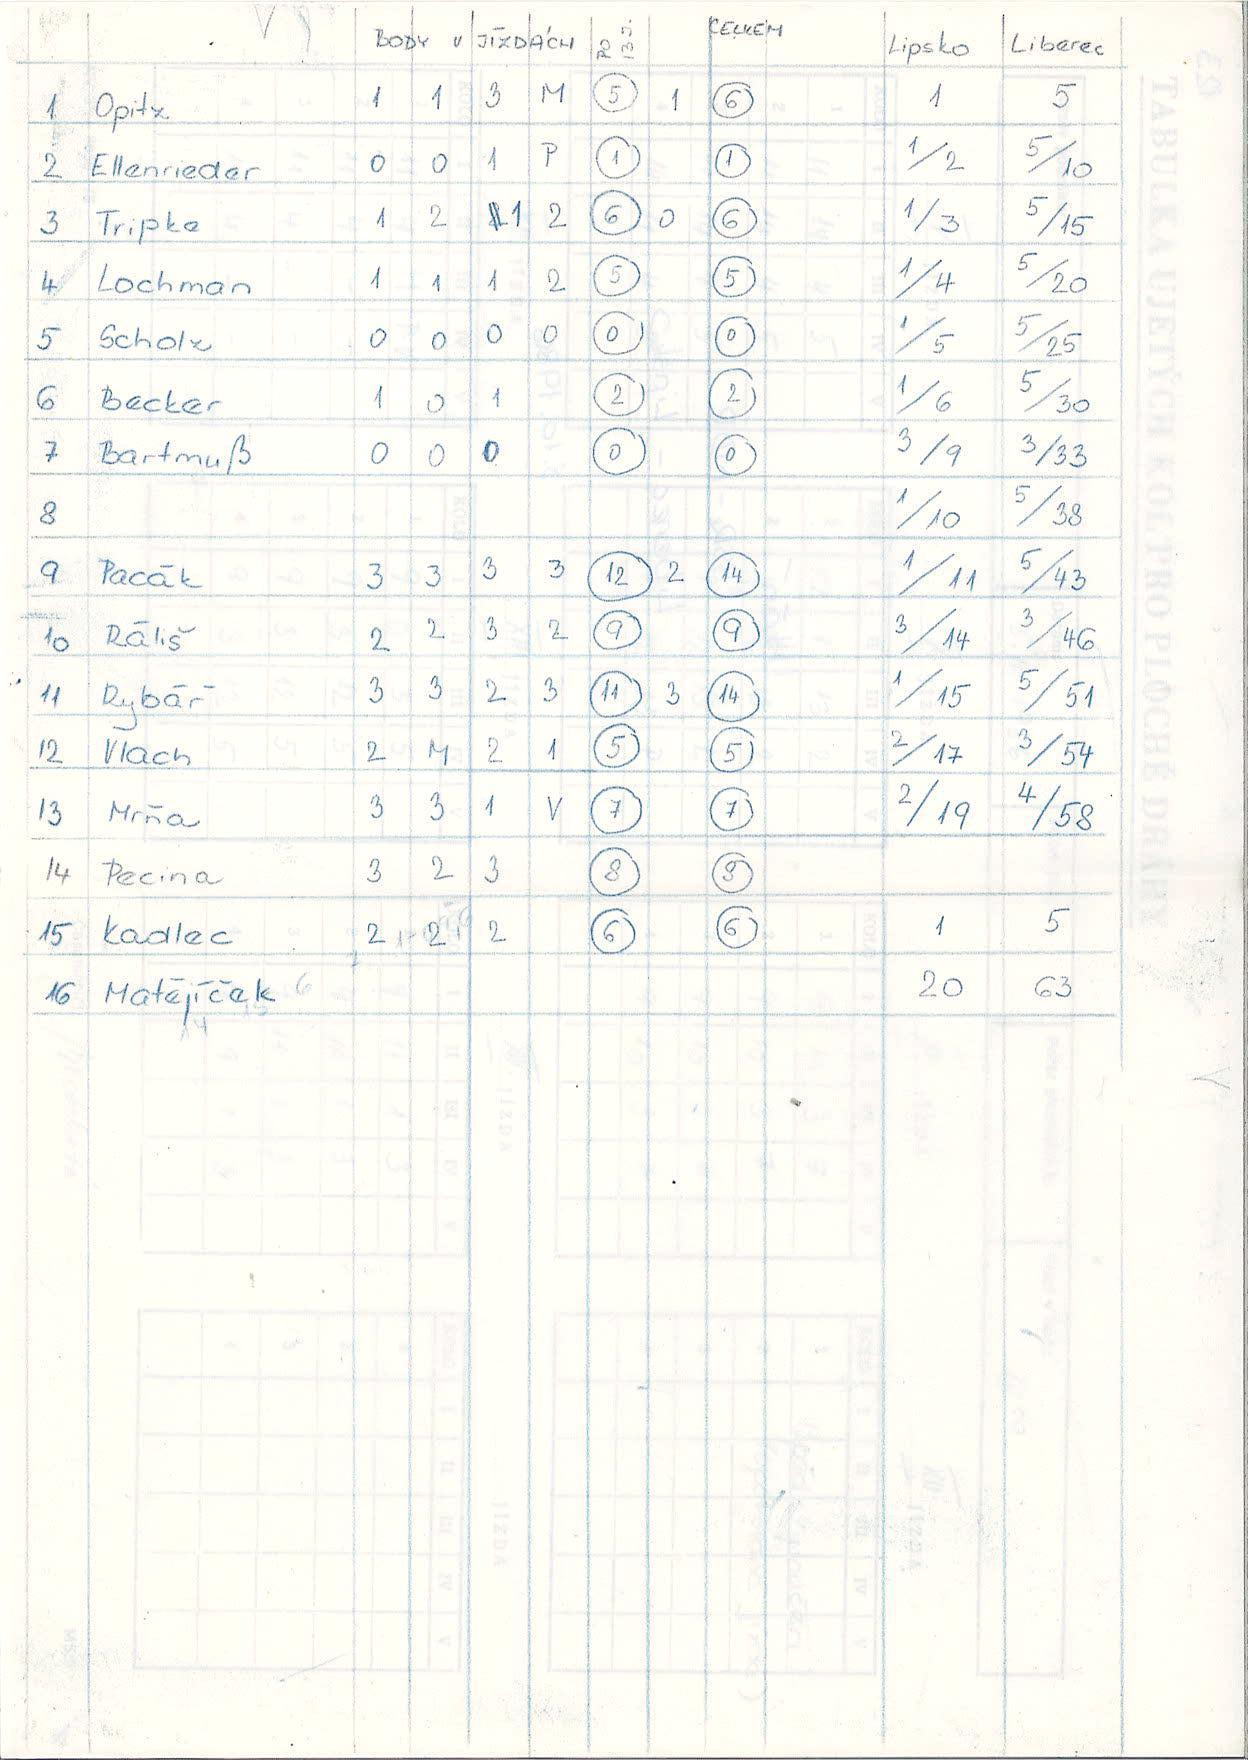 BODY V JÍZDÁCH PO 13 J. CELKEM Lipsko Liberec
1 Opitz 1 1 3 M 5 1 6 1 5
2 Ellenrieder 0 0 1 P 1 1 1/2 5/10
3 Tripke 1 2 1 2 6 0 6 1/3 5/15
4 Lochman 1 1 1 2 5 5 1/4 5/20
5 Scholz 0 0 0 0 0 0 1/5 5/25
6 Becker 1 0 1 2 2 1/6 5/30
7 Bartmuß 0 0 0 0 0 3/9 3/33
8 1/10 5/38
9 Pacák 3 3 3 3 12 2 14 1/11 5/43
10 Ráliš 2 2 3 2 9 9 3/14 3/46
11 Rybář 3 3 2 3 11 3 14 1/15 5/51
12 Vlach 2 M 2 1 5 5 2/17 3/54
13 Mrňa 3 3 1 V 7 7 2/19 4/58
14 Pecina 3 2 3 8 8
15 Kadlec 2 2 2 6 6 1 5
16 Matějíček 20 63
TABULKA UJETÝCH KOL PRO PLOCHÉ DRÁHY